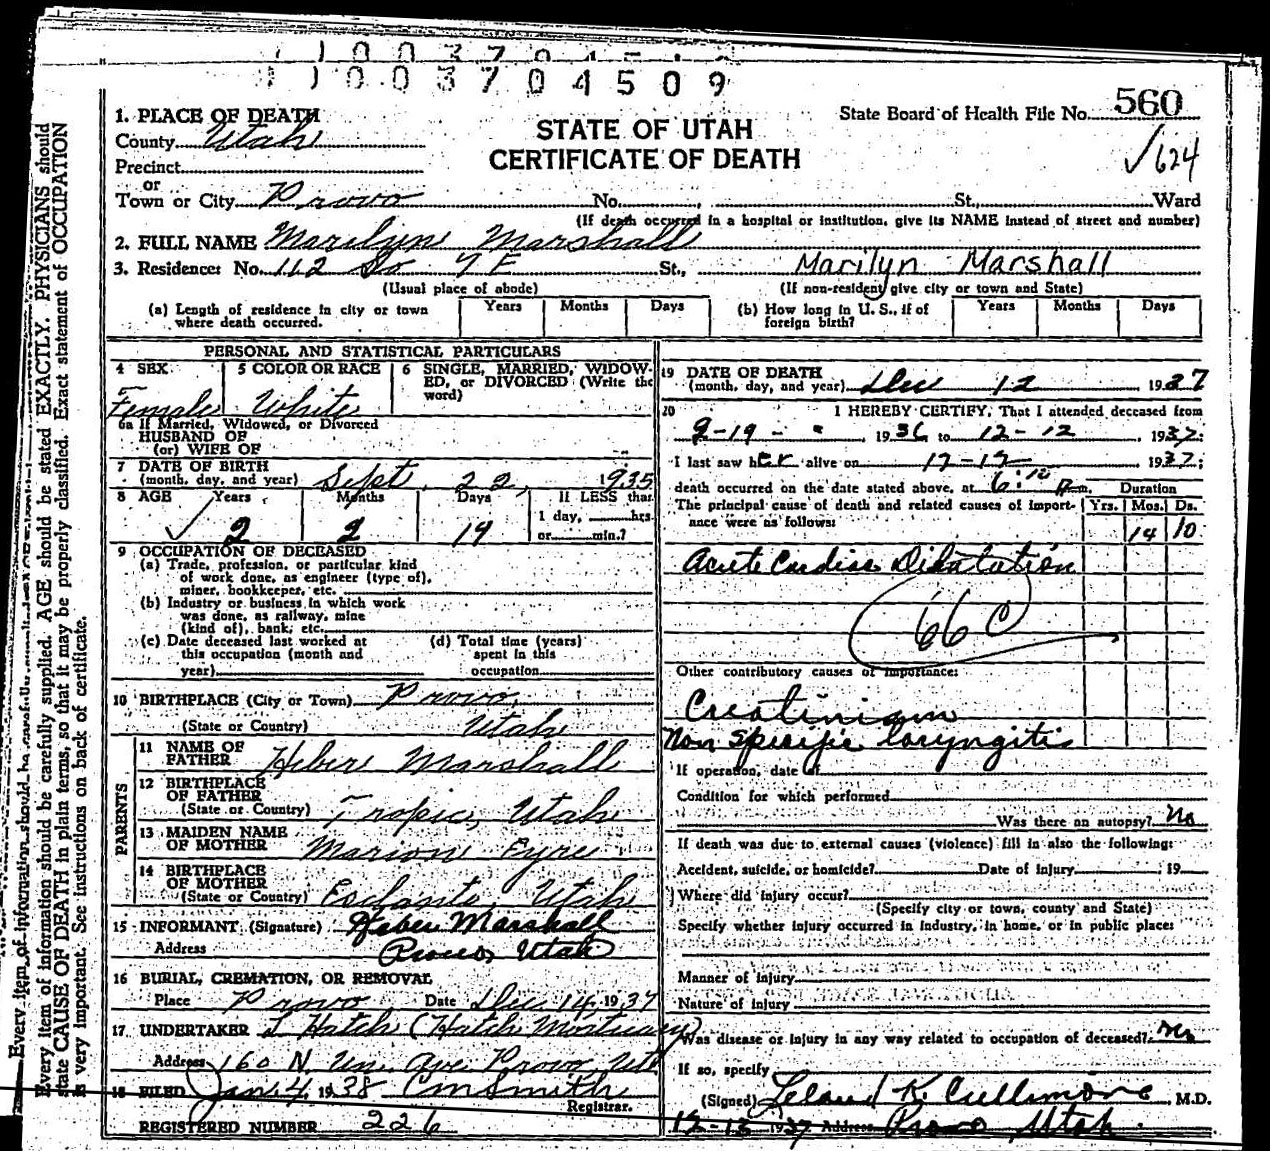 1 1 0 0 3 7 0 4 5 0 9
State Board of Health File No. 560
√624
STATE OF UTAH
CERTIFICATE OF DEATH
1. PLACE OF DEATH
County Utah
Precinct
or
Town or City Provo No. , St., Ward
(If death occurred in a hospital or institution, give its NAME instead of street and number)
2. FULL NAME Marilyn Marshall
3. Residence: No. 112 So 7 E St., Marilyn Marshall
(Usual place of abode) (If non-resident give city or town and State)
(a) Length of residence in city or town where death occurred. Years Months Days (b) How long in U. S., if of foreign birth? Years Months Days
PERSONAL AND STATISTICAL PARTICULARS
4 SEX 5 COLOR OR RACE 6 SINGLE, MARRIED, WIDOWED, or DIVORCED (Write the word)
Female White
6a If Married, Widowed, or Divorced
HUSBAND OF
(or) WIFE OF
7 DATE OF BIRTH
(month, day, and year) Sept. 22, 1935
8 AGE Years Months Days If LESS than
√ 2 2 19 1 day, hrs.
or min.?
9 OCCUPATION OF DECEASED
(a) Trade, profession, or particular kind
of work done, as engineer (type of),
miner, bookkeeper, etc.
(b) Industry or business in which work
was done, as railway, mine
(kind of), bank, etc.
(c) Date deceased last worked at
this occupation (month and
year)
(d) Total time (years)
spent in this
occupation
10 BIRTHPLACE (City or Town) Provo,
(State or Country) Utah
PARENTS
11 NAME OF
FATHER Heber Marshall
12 BIRTHPLACE
OF FATHER
(State or Country) Tropic, Utah
13 MAIDEN NAME
OF MOTHER Marion Eyre
14 BIRTHPLACE
OF MOTHER
(State or Country) Utah
15 INFORMANT (Signature) Heber Marshall
Address Provo, Utah
16 BURIAL, CREMATION, OR REMOVAL
Place Provo Date Dec 14, 1937
17 UNDERTAKER Hatch (Hatch Mortuary)
Address 160 N. Un. Ave Provo, Ut
18 FILED Jan. 4, 1938 C M Smith
Registrar.
REGISTERED NUMBER 226
19 DATE OF DEATH
(month, day, and year) Dec 12 1937
20 I HEREBY CERTIFY, That I attended deceased from
9-19- , 1936 to 12-12 , 1937;
I last saw her alive on 12-12 1937;
death occurred on the date stated above, at 6:10 m. Duration
The principal cause of death and related causes of importance were as follows: Yrs. Mos. Ds.
14 10
Acute Cardiac Dilatation
66 C
Other contributory causes of importance:
Creatinism
Non specific laryngitis
If operation, date of
Condition for which performed
Was there an autopsy? No
If death was due to external causes (violence) fill in also the following:
Accident, suicide, or homicide? Date of injury , 19
Where did injury occur?
(Specify city or town, county and State)
Specify whether injury occurred in industry, in home, or in public place:
Manner of injury
Nature of injury
Was disease or injury in any way related to occupation of deceased? No
If so, specify
(Signed) Leland K. Cullimore, M.D.
1937 Address Provo Utah.
Every item of information should be carefully supplied. AGE should be stated EXACTLY. PHYSICIANS should
state CAUSE OF DEATH in plain terms, so that it may be properly classified. Exact statement of OCCUPATION
is very important. See instructions on back of certificate.